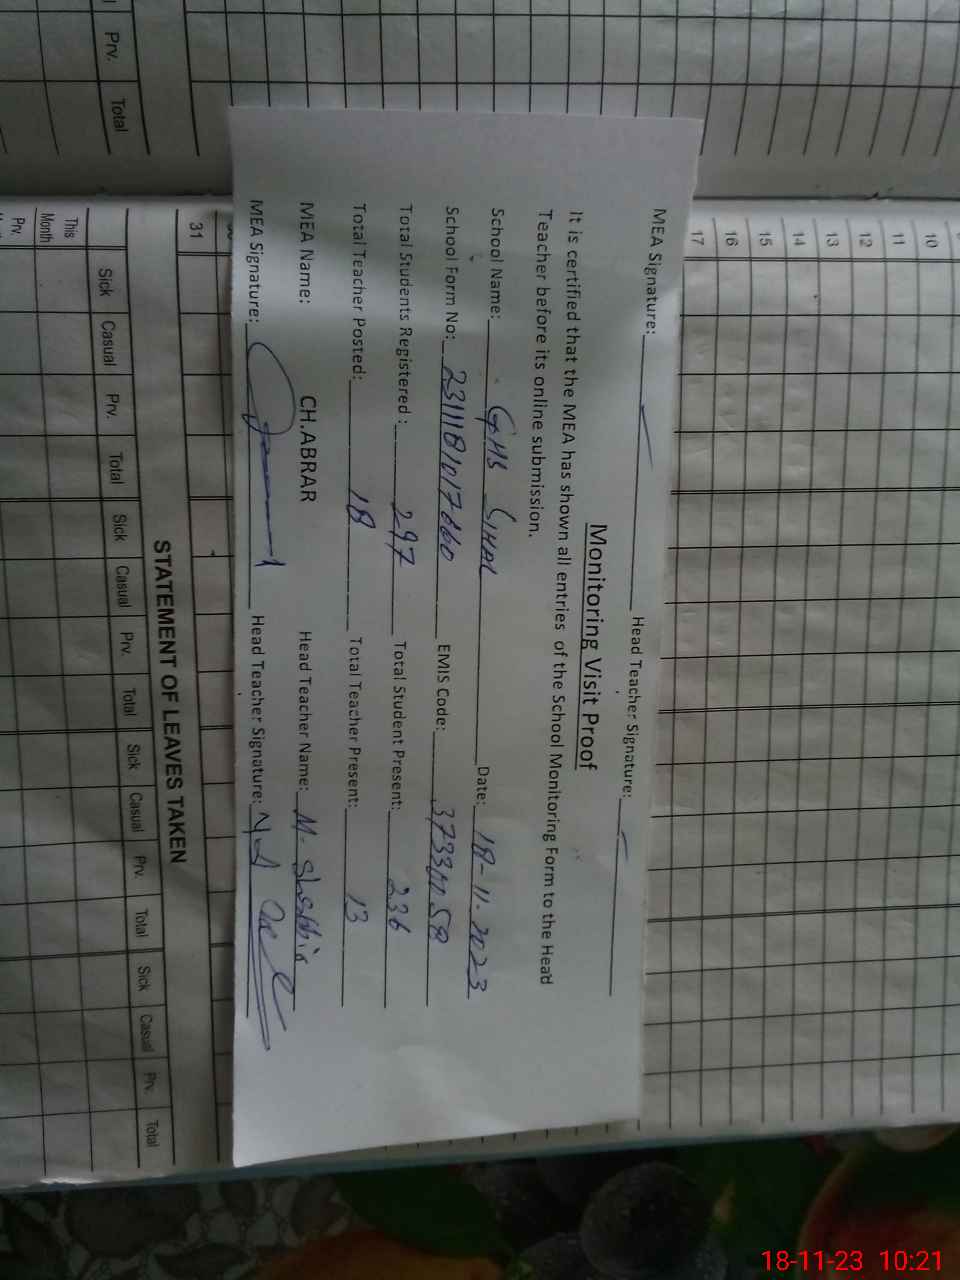 MEA Signature: Head Teacher Signature:
Monitoring Visit Proof
It is certified that the MEA has shown all entries of the School Monitoring Form to the Head
Teacher before its online submission.
School Name: GHS SIHAL Date: 18-11-2023
School Form No: EMIS Code:
Total Students Registered: 297 Total Student Present: 236
Total Teacher Posted: 18 Total Teacher Present: 13
MEA Name: CH.ABRAR Head Teacher Name: M. Shabbir
MEA Signature: Head Teacher Signature:
Prv. Total
10
11
12
13
14
15
16
17
31
STATEMENT OF LEAVES TAKEN
Sick Casual Prv. Total Sick Casual Prv. Total Sick Casual Prv. Total Sick Casual Prv. Total
This
Month
Prv.
18-11-23 10:21